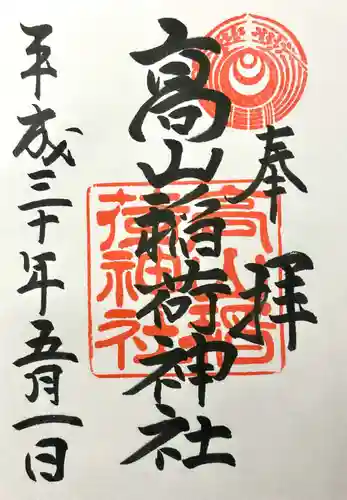 奉拝
高山稲荷神社
平成三十年五月一日
高山稲荷神社